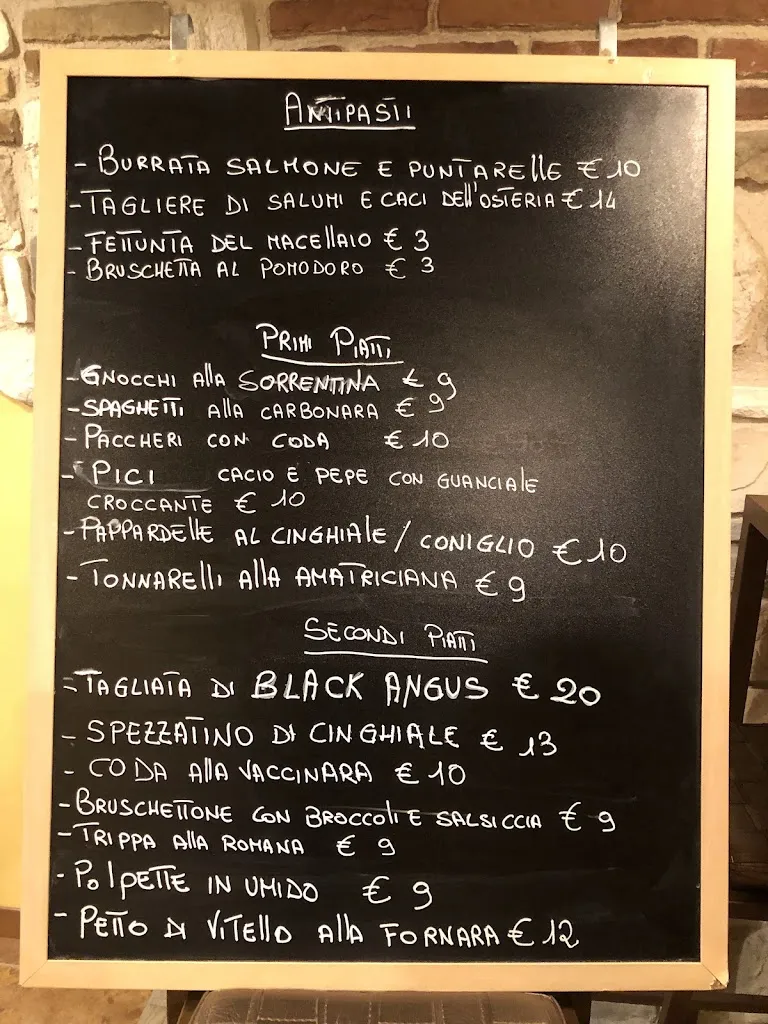 ANTIPASTI
- BURRATA SALMONE E PUNTARELLE € 10
- TAGLIERE DI SALUMI E CACI DELL'OSTERIA € 14
- FETTUNTA DEL MACELLAIO € 3
- BRUSCHETTA AL POMODORO € 3
PRIMI PIATTI
- GNOCCHI ALLA SORRENTINA € 9
- SPAGHETTI ALLA CARBONARA € 9
- PACCHERI CON CODA € 10
- PICI CACIO E PEPE CON GUANCIALE
CROCCANTE € 10
- PAPPARDELLE AL CINGHIALE / CONIGLIO € 10
- TONNARELLI ALLA AMATRICIANA € 9
SECONDI PIATTI
- TAGLIATA DI BLACK ANGUS € 20
- SPEZZATINO DI CINGHIALE € 13
- CODA ALLA VACCINARA € 10
- BRUSCHETTONE CON BROCCOLI E SALSICCIA € 9
- TRIPPA ALLA ROMANA € 9
- POLPETTE IN UMIDO € 9
- PETTO DI VITELLO ALLA FORNARA € 12